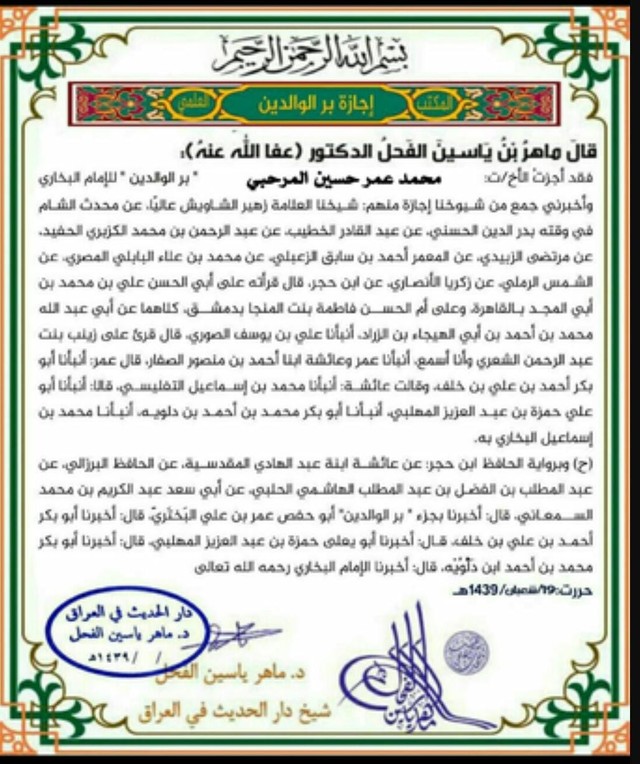 بسم الله الرحمن الرحيم
المكتب إجازة بر الوالدين العلمي
قالَ ماهرُ بْنُ يَاسينَ الفَحلُ الدكتور (عفا اللّٰه عنهُ):
فقد أجزتُ الأخ/ت: محمد عمر حسين المرحبي "بر الوالدين" للإمام البخاري
وأخبرني جمع من شيوخنا إجازة منهم: شيخنا العلامة زهير الشاويش عاليًا، عن محدث الشام
في وقته بدر الدين الحسني، عن عبد القادر الخطيب، عن عبد الرحمن بن محمد الكزبري الحفيد،
عن مرتضى الزبيدي، عن المعمر أحمد بن سابق الزعبلي، عن محمد بن علاء البابلي المصري، عن
الشمس الرملي، عن زكريا الأنصاري، عن ابن حجر، قال قرأته على أبي الحسن علي بن محمد بن
أبي المجد بالقاهرة، وعلى أم الحسن فاطمة بنت المنجا بدمشق، كلاهما عن أبي عبد الله
محمد بن أحمد بن أبي الهيجاء بن الزراد، أنبأنا علي بن يوسف الصوري، قال قرئ على زينب بنت
عبد الرحمن الشعري وأنا أسمع، أنبأنا عمر وعائشة ابنا أحمد بن منصور الصفار، قال عمر: أنبأنا أبو
بكر أحمد بن علي بن خلف، وقالت عائشة: أنبأنا محمد بن إسماعيل التفليسي، قالا: أنبأنا أبو
علي حمزة بن عبد العزيز المهلبي، أنبأنا أبو بكر محمد بن أحمد بن دلويه، أنبأنا محمد بن
إسماعيل البخاري به.
(ح) وبرواية الحافظ ابن حجر: عن عائشة ابنة عبد الهادي المقدسية، عن الحافظ البرزالي، عن
عبد المطلب بن الفضل بن عبد المطلب الهاشمي الحلبي، عن أبي سعد عبد الكريم بن محمد
السمعاني، قال: أخبرنا بجزء "بر الوالدين" أبو حفص عمر بن علي البَخْتَرِيّ، قال: أخبرنا أبو بكر
أحمد بن علي بن خلف، قال: أخبرنا أبو يعلى حمزة بن عبد العزيز المهلبي، قال: أخبرنا أبو بكر
محمد بن أحمد ابن دَلُّوَيْه، قال: أخبرنا الإمام البخاري رحمه الله تعالى
حررت:19/شعبان/1439هـ
دار الحديث في العراق
د. ماهر ياسين الفحل
/ / ١٤٣٩هـ
د. ماهر ياسين الفحل
شيخ دار الحديث في العراق